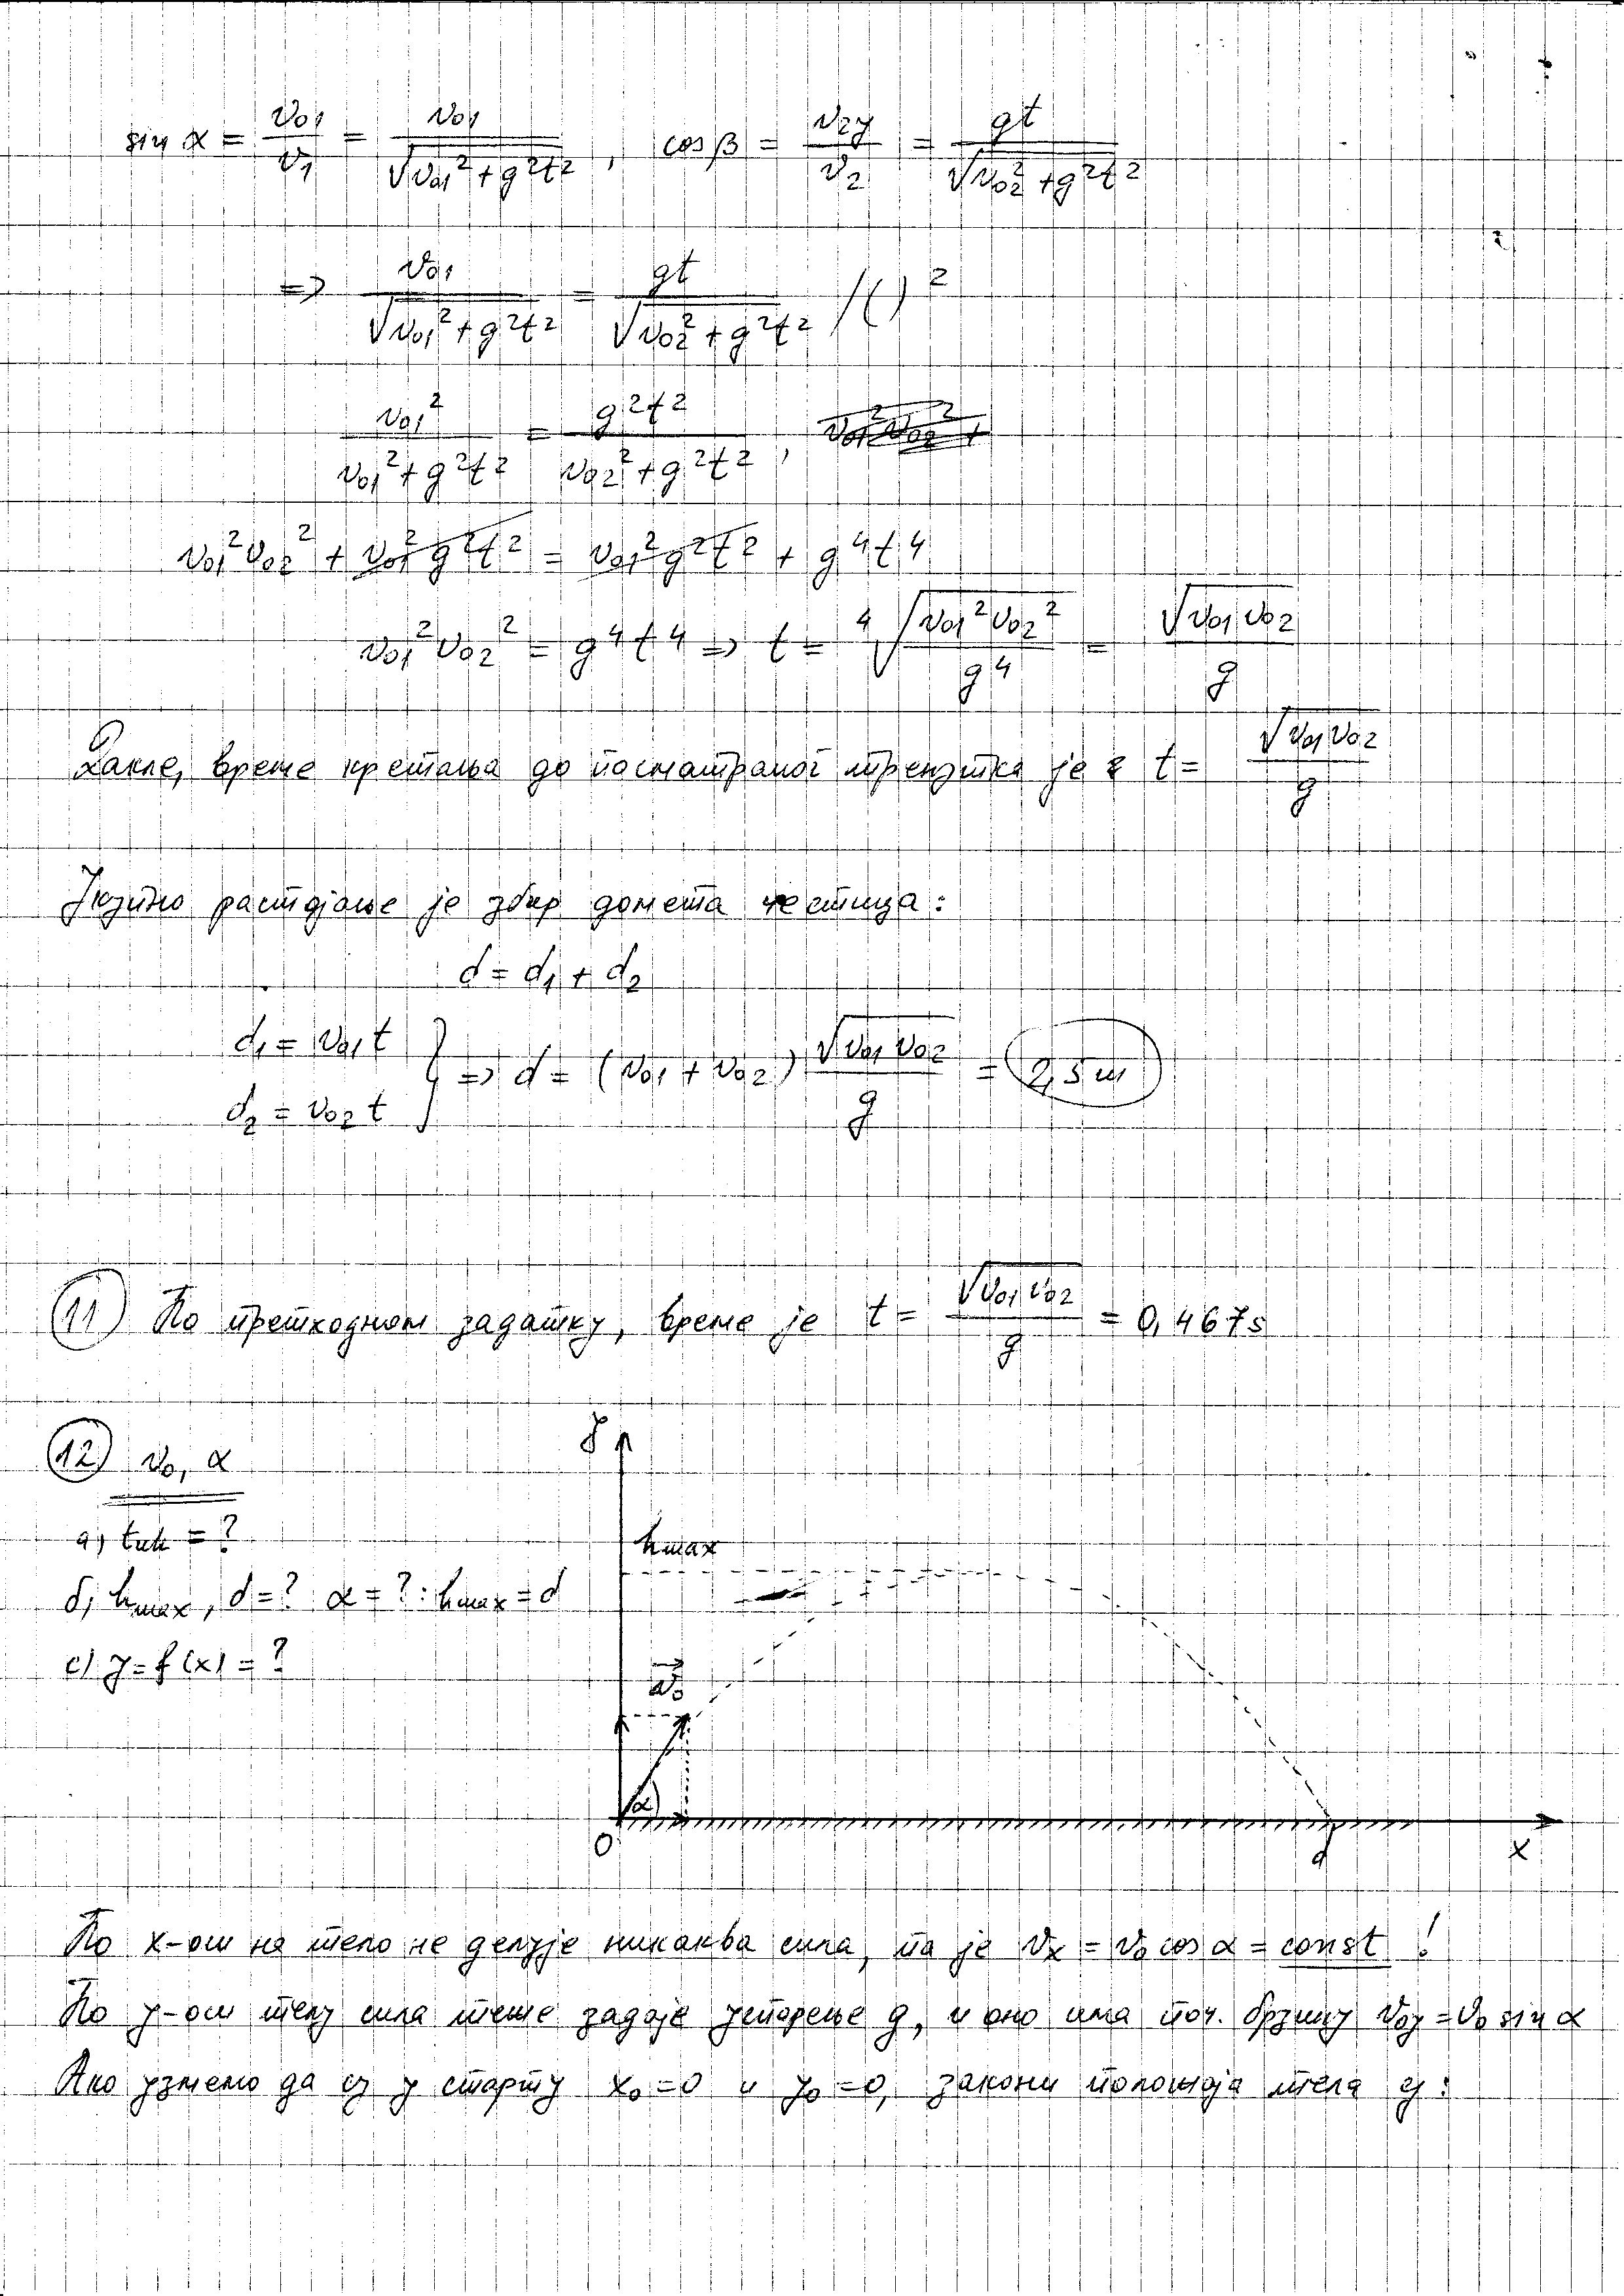 sin α = v₀₁/v₁ = v₀₁/√(v₀₁² + g²t²) , cos β = v₂y/v₂ = gt/√(v₀₂² + g²t²)
=> v₀₁/√(v₀₁² + g²t²) = gt/√(v₀₂² + g²t²) /( )²
v₀₁²/(v₀₁² + g²t²) = g²t²/(v₀₂² + g²t²) ,
v₀₁²v₀₂² + v₀₁²g²t² = v₀₁²g²t² + g⁴t⁴
v₀₁²v₀₂² = g⁴t⁴ => t = ⁴√(v₀₁²v₀₂²/g⁴) = √(v₀₁v₀₂)/g
Дакле, време кретања до посматраног тренутка је t = √(v₀₁v₀₂)/g
Укупно растојање је збир домета честица:
d = d₁ + d₂
d₁ = v₀₁t
d₂ = v₀₂t } => d = (v₀₁ + v₀₂) √(v₀₁v₀₂)/g = 2,5m
11 По претходном задатку, време је t = √(v₀₁v₀₂)/g = 0,467s
12 v₀, α
а) tuk = ?
б) hmax, d = ? α = ? : hmax = d
c) y = f(x) = ?
y
hmax
v₀
α
0
d
x
По x-оси на тело не делује никаква сила, па је vx = v₀ cos α = const !
По y-оси телу сила теже задаје успорење g, и оно има поч. брзину v₀y = v₀ sin α
Ако узмемо да су у старту x₀ = 0 и y₀ = 0, закони положаја тела су: